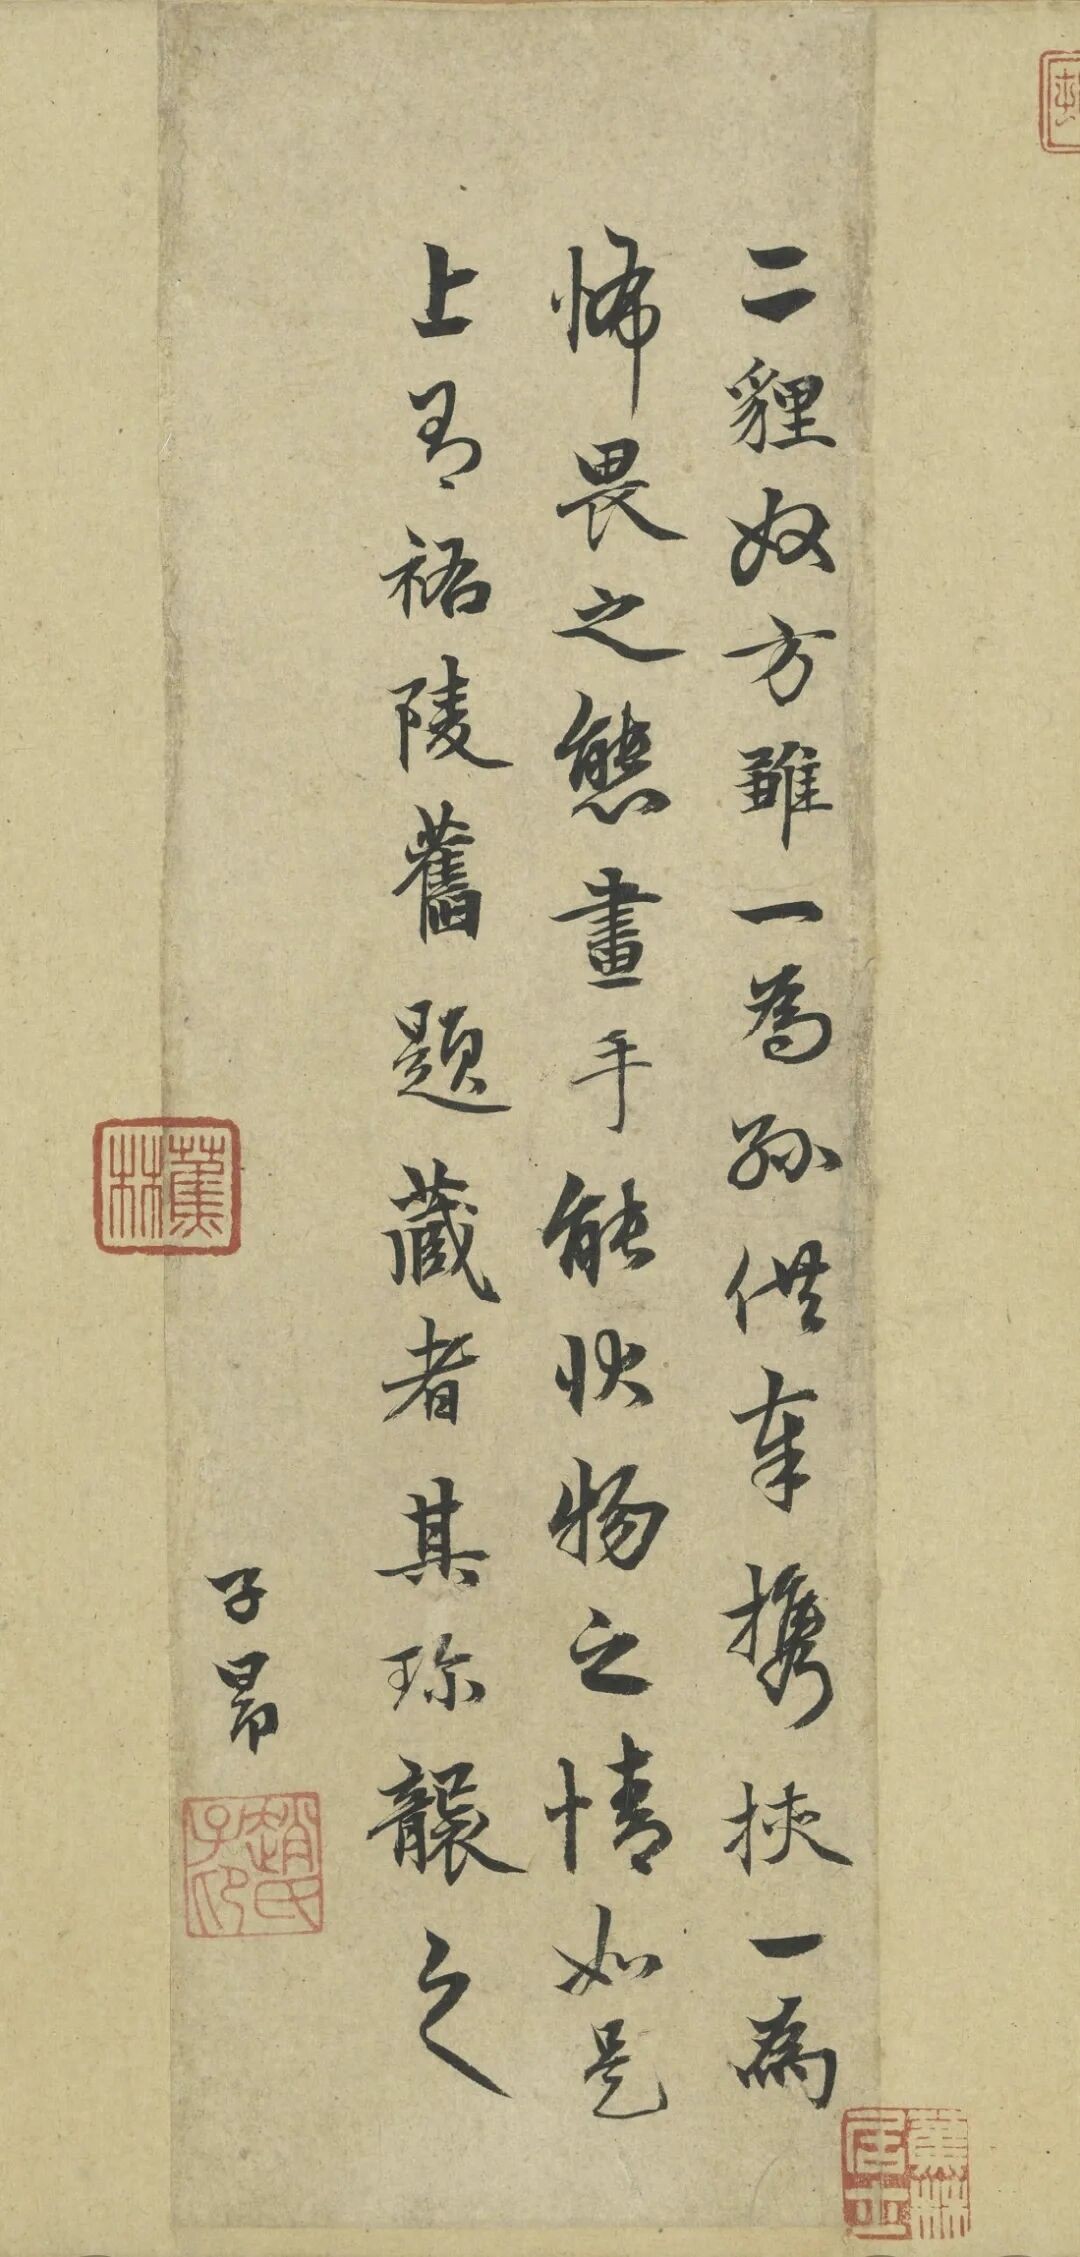 二貍奴方雖一為孫供奉攜挾一為
怖畏之態畫手能狀物之情如是
上有祐陵舊題藏者其珍襲之
子昂
趙氏子印
蕉林
蕉林居士